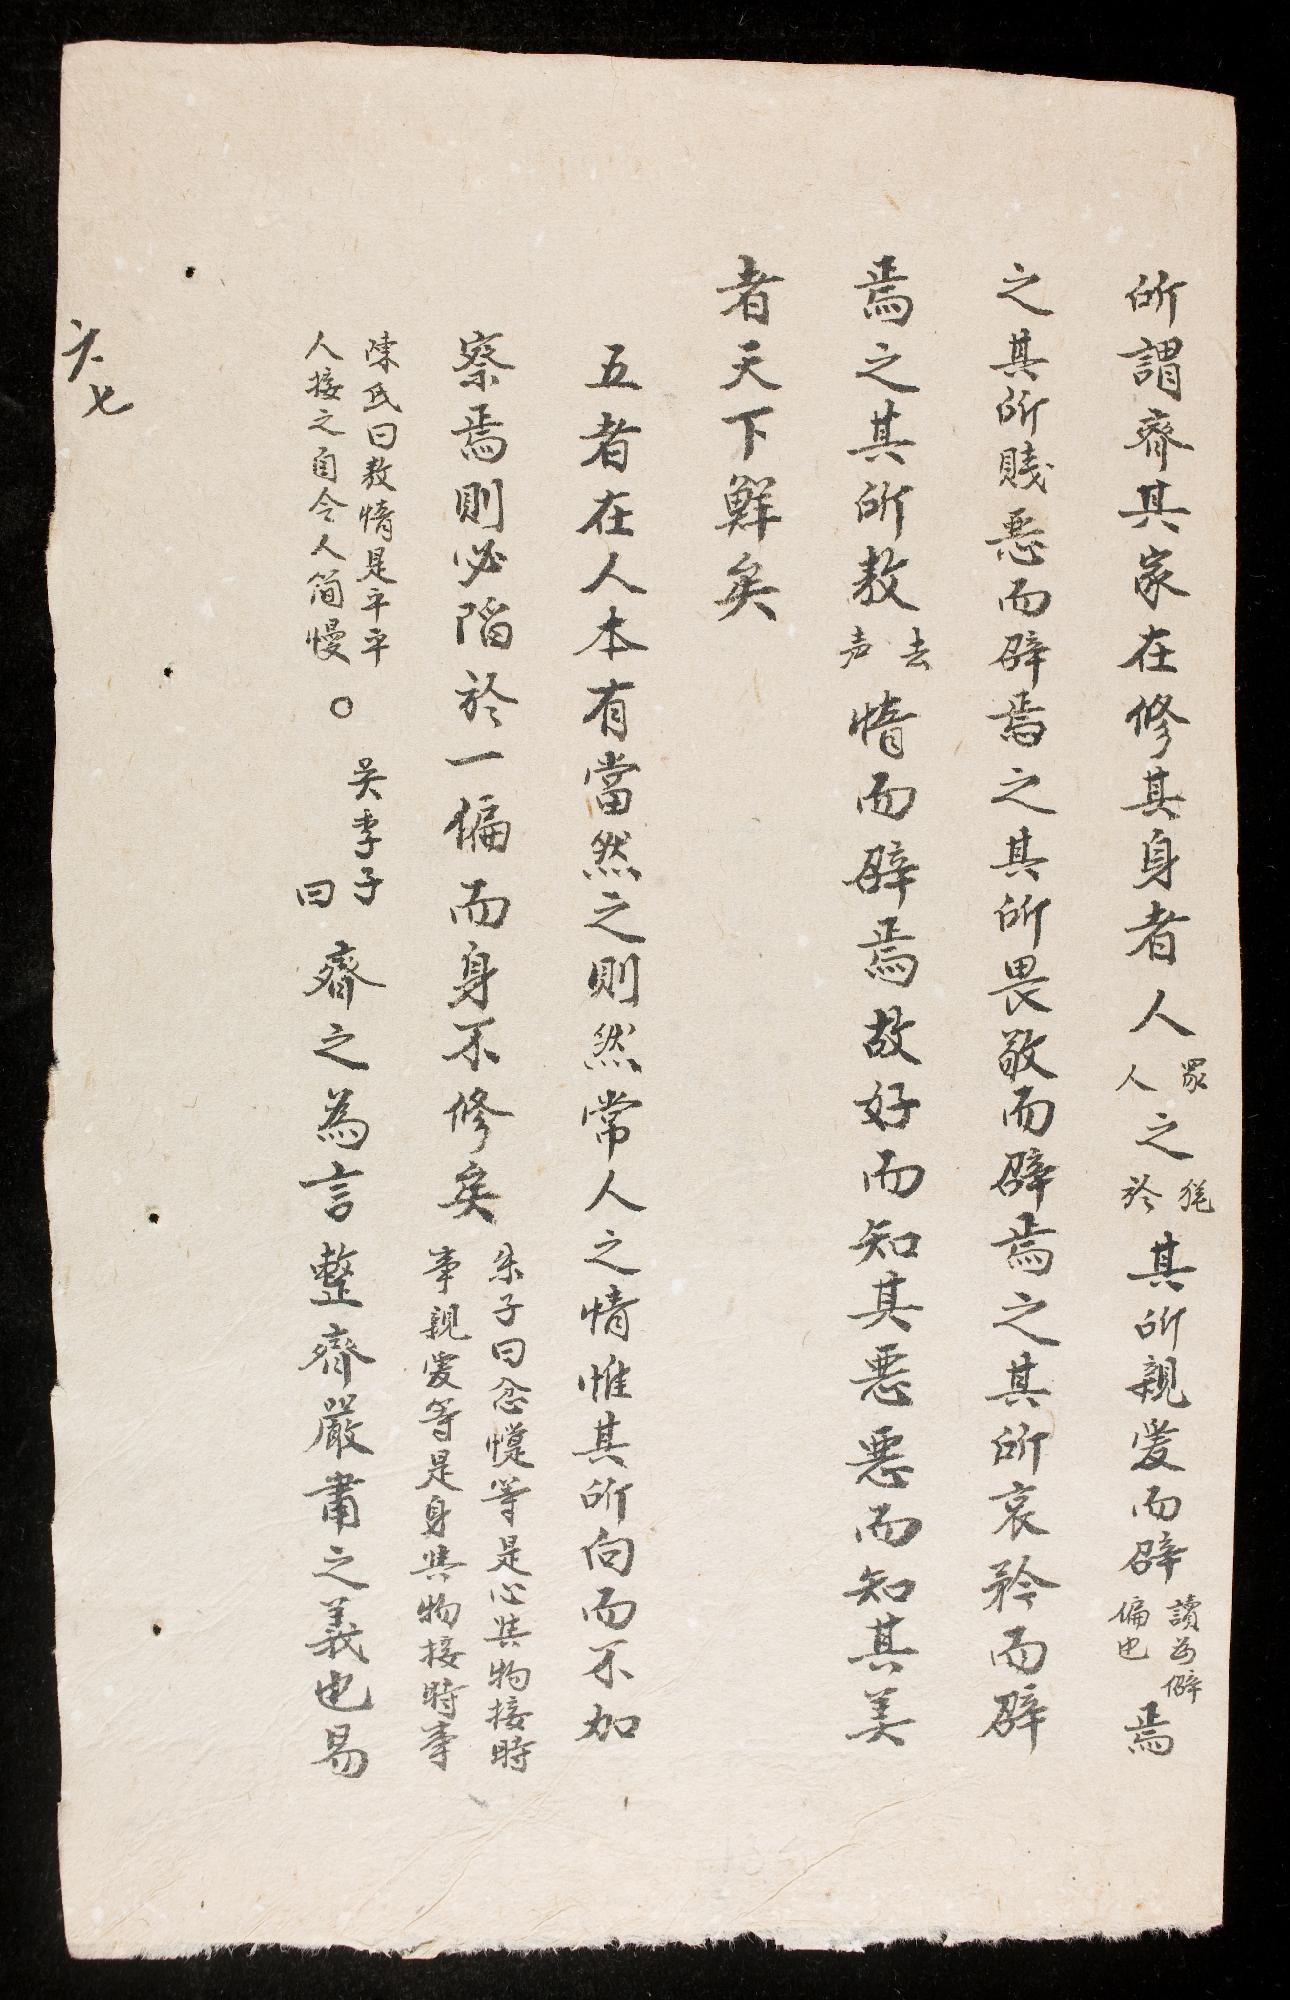 所謂齊其家在修其身者人衆人之於其所親愛而辟讀爲僻偏也焉
之其所賤惡而辟焉之其所畏敬而辟焉之其所哀矜而辟
焉之其所敖去声惰而辟焉故好而知其惡惡而知其美
者天下鮮矣
五者在人本有當然之則然常人之情惟其所向而不加
察焉則必陷於一偏而身不修矣朱子曰忿懥等是心與物接時事親愛等是身與物接時事
陳氏曰敖惰是平平人接之自令人簡慢○吴季子曰齊之為言整齊嚴肅之義也易
六七